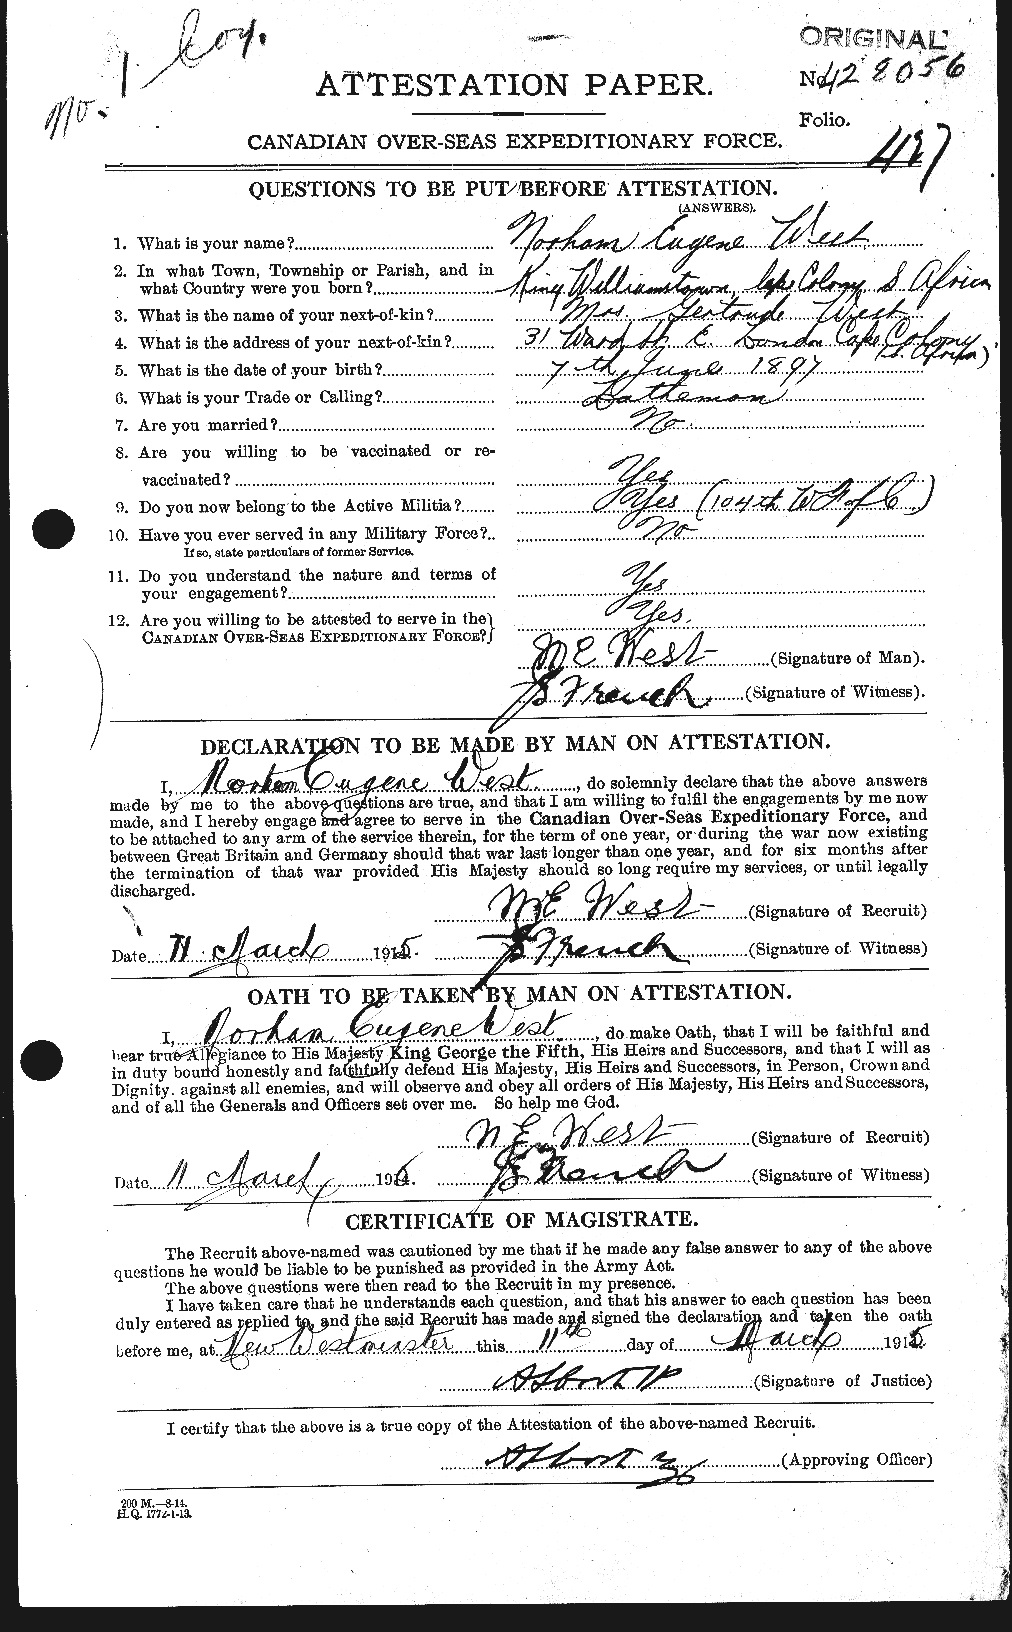 No. 1 Coy.
ORIGINAL
No 428056
ATTESTATION PAPER.
Folio.
CANADIAN OVER-SEAS EXPEDITIONARY FORCE.
QUESTIONS TO BE PUT BEFORE ATTESTATION.
(ANSWERS).
1. What is your name? Norham Eugene West
2. In what Town, Township or Parish, and in
what Country were you born? King Williamstown, Cape Colony S Africa
3. What is the name of your next-of-kin? Mrs Gertrude West
4. What is the address of your next-of-kin? 31 Ward St E. London Cape Colony
(S. Africa)
5. What is the date of your birth? 7th June 1897
6. What is your Trade or Calling?
7. Are you married? No
8. Are you willing to be vaccinated or re-
vaccinated? Yes
9. Do you now belong to the Active Militia? Yes (104th W F of C)
10. Have you ever served in any Military Force? No
If so, state particulars of former Service.
11. Do you understand the nature and terms of
your engagement? Yes
12. Are you willing to be attested to serve in the
CANADIAN OVER-SEAS EXPEDITIONARY FORCE? Yes.
N E West (Signature of Man).
French (Signature of Witness).
DECLARATION TO BE MADE BY MAN ON ATTESTATION.
I, Norham Eugene West, do solemnly declare that the above answers
made by me to the above questions are true, and that I am willing to fulfil the engagements by me now
made, and I hereby engage and agree to serve in the Canadian Over-Seas Expeditionary Force, and
to be attached to any arm of the service therein, for the term of one year, or during the war now existing
between Great Britain and Germany should that war last longer than one year, and for six months after
the termination of that war provided His Majesty should so long require my services, or until legally
discharged.
N E West (Signature of Recruit)
Date 11 March 1915. French (Signature of Witness)
OATH TO BE TAKEN BY MAN ON ATTESTATION.
I, Norham Eugene West, do make Oath, that I will be faithful and
bear true Allegiance to His Majesty King George the Fifth, His Heirs and Successors, and that I will as
in duty bound honestly and faithfully defend His Majesty, His Heirs and Successors, in Person, Crown and
Dignity, against all enemies, and will observe and obey all orders of His Majesty, His Heirs and Successors,
and of all the Generals and Officers set over me. So help me God.
N E West (Signature of Recruit)
Date 11 March 191 French (Signature of Witness)
CERTIFICATE OF MAGISTRATE.
The Recruit above-named was cautioned by me that if he made any false answer to any of the above
questions he would be liable to be punished as provided in the Army Act.
The above questions were then read to the Recruit in my presence.
I have taken care that he understands each question, and that his answer to each question has been
duly entered as replied to, and the said Recruit has made and signed the declaration and taken the oath
before me, at New Westminster this 11th day of March 1915
(Signature of Justice)
I certify that the above is a true copy of the Attestation of the above-named Recruit.
(Approving Officer)
200 M.—8-14.
H.Q. 1772-1-13.